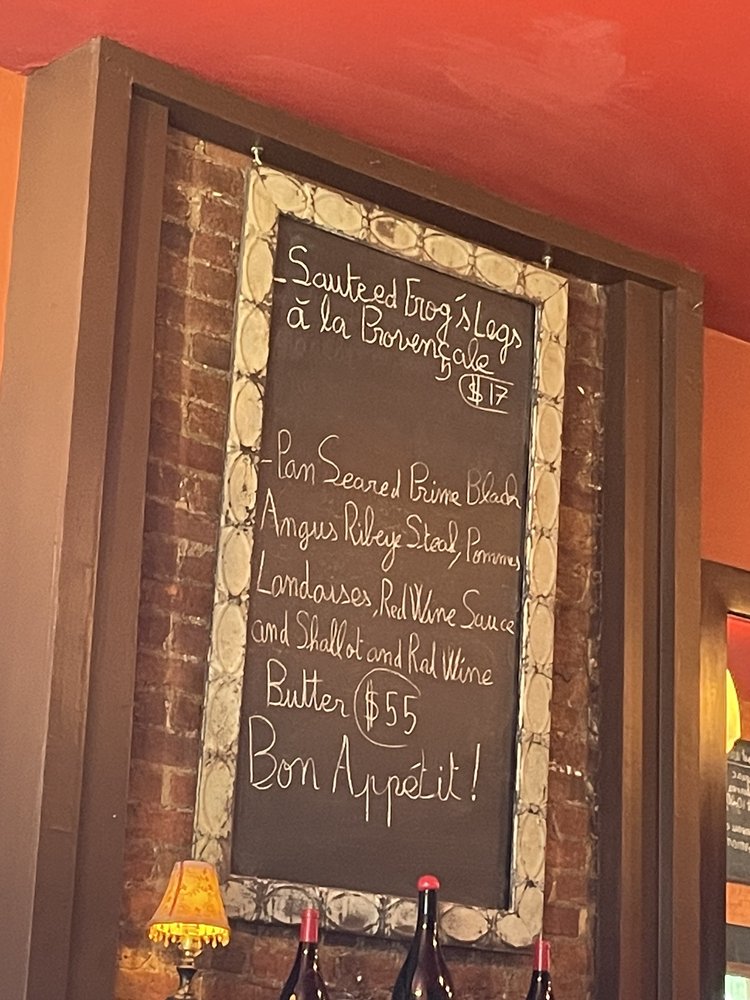 - Sauteed Frog's Legs
à la Provençale
$17
- Pan Seared Prime Black
Angus Ribeye Steak, Pommes
Landaises, Red Wine Sauce
and Shallot and Red Wine
Butter $55
Bon Appétit!